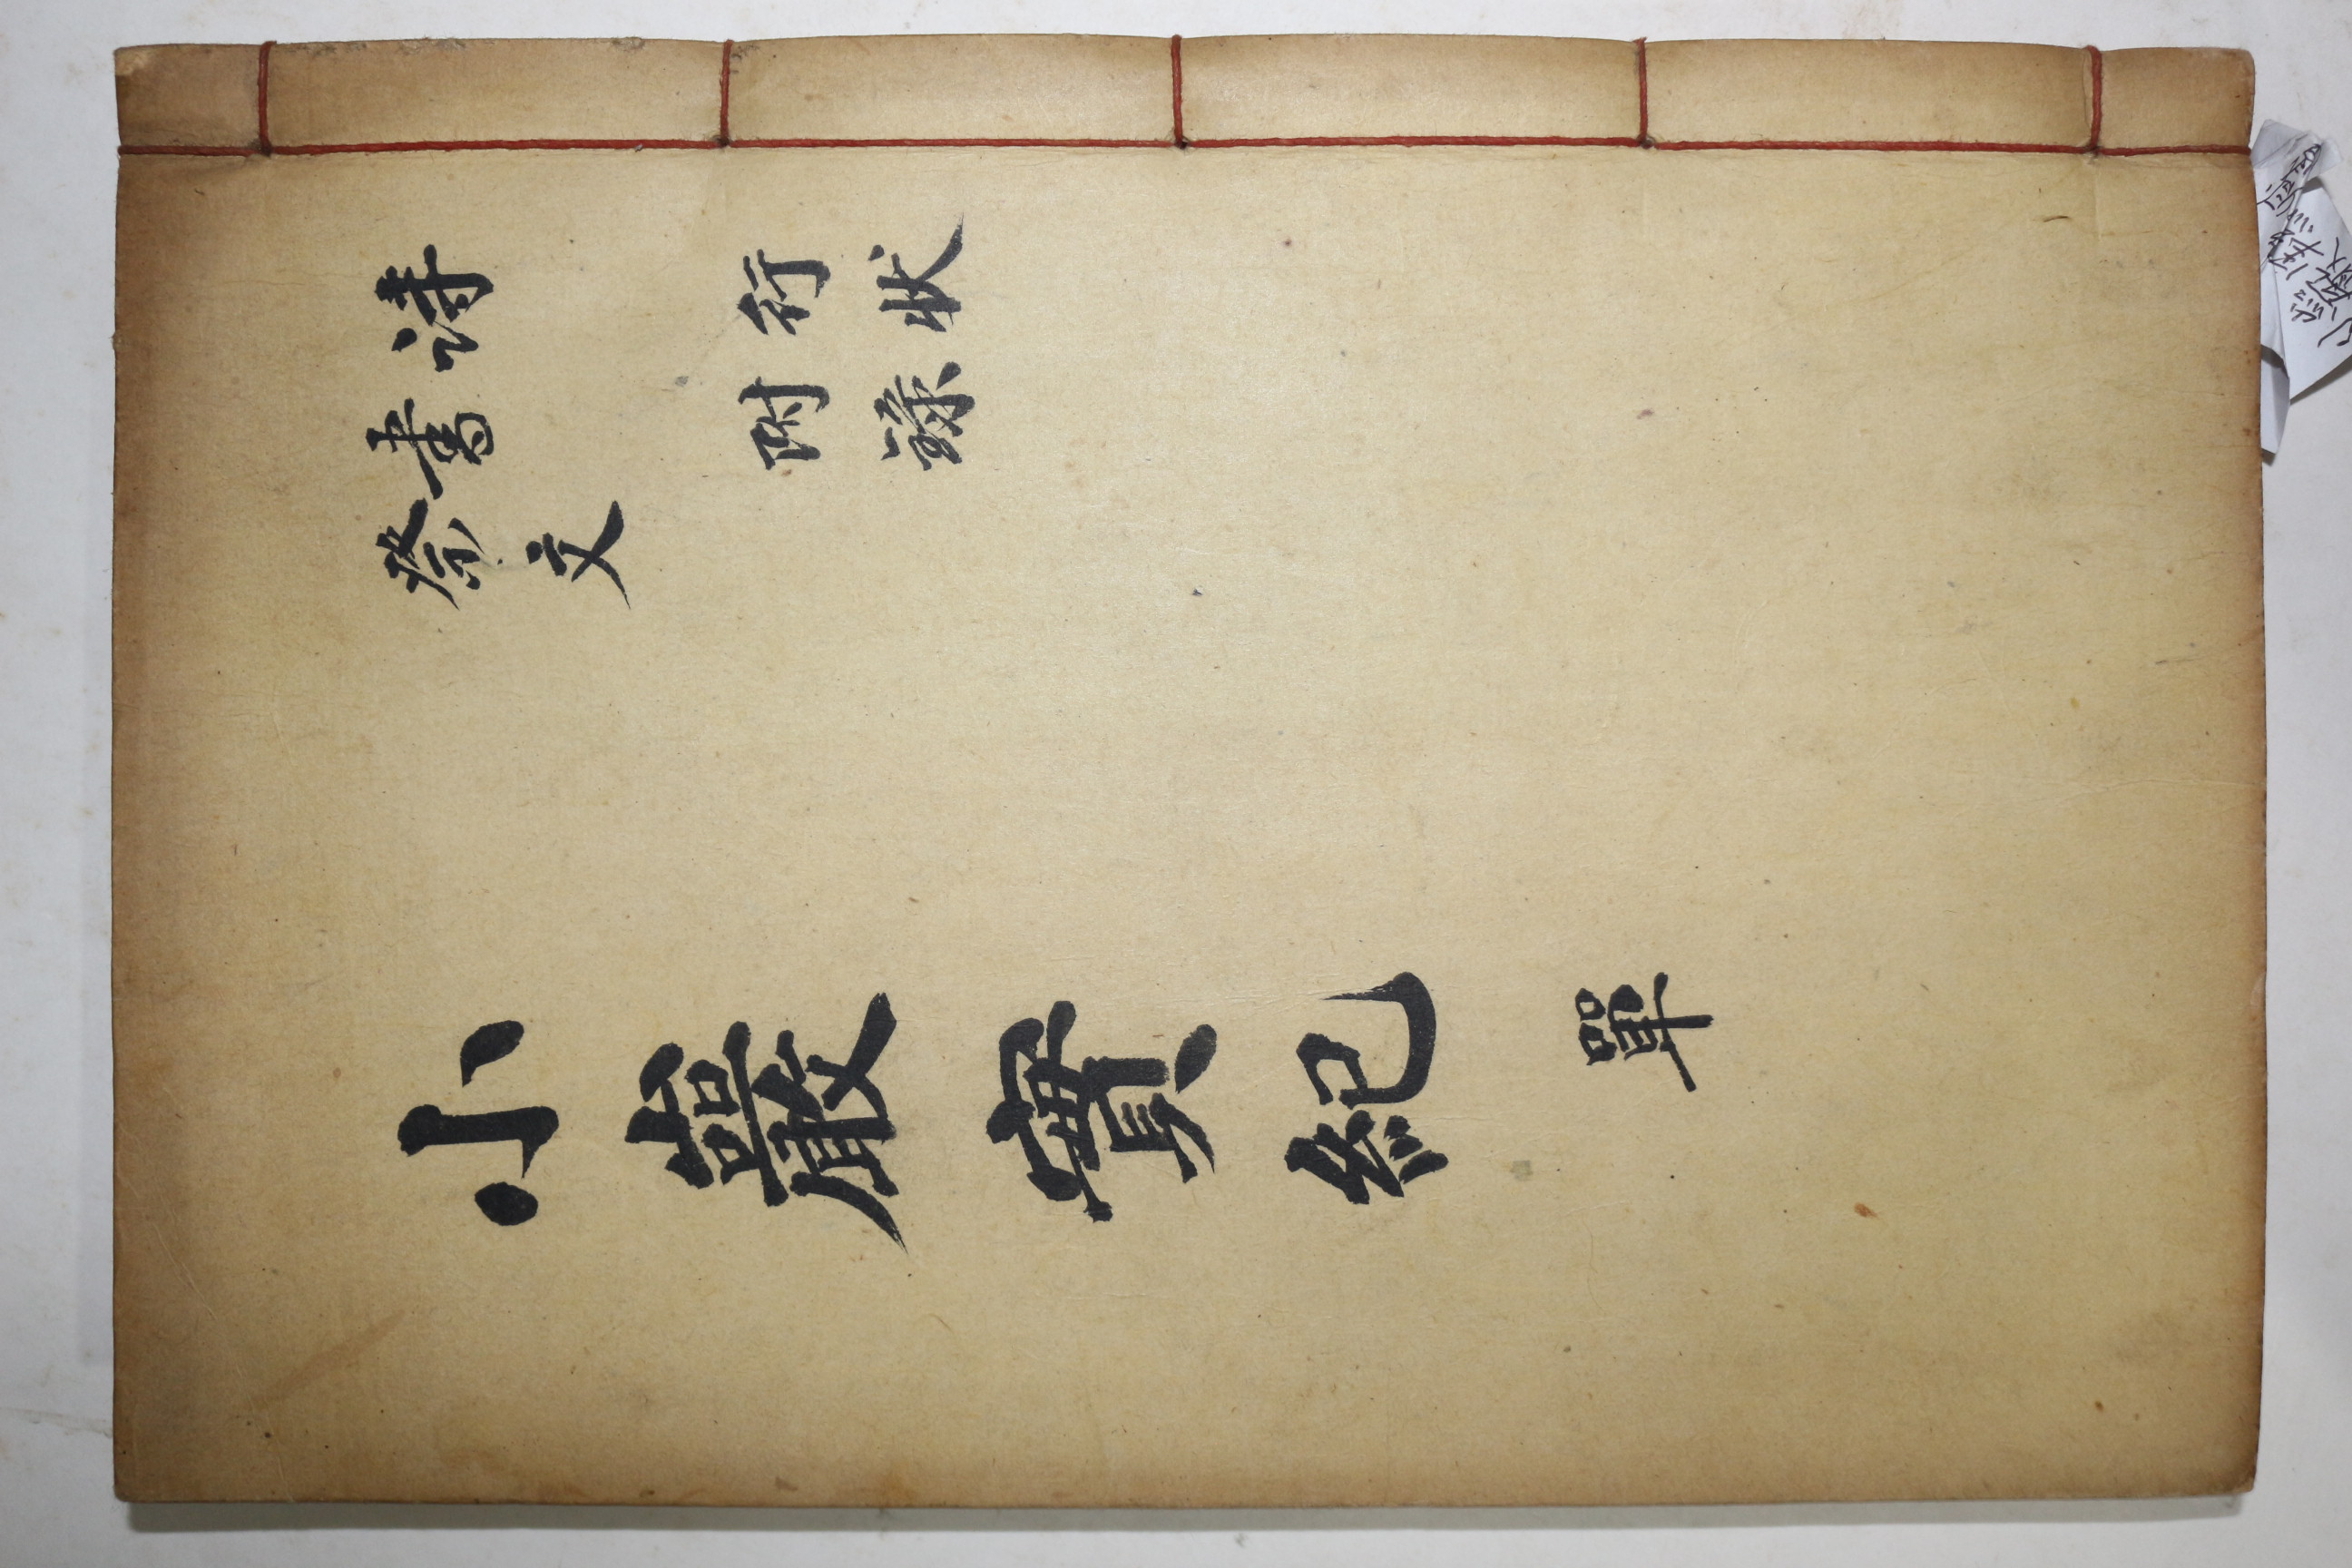 詩
書
祭文
行狀
附錄
小巖實紀 單